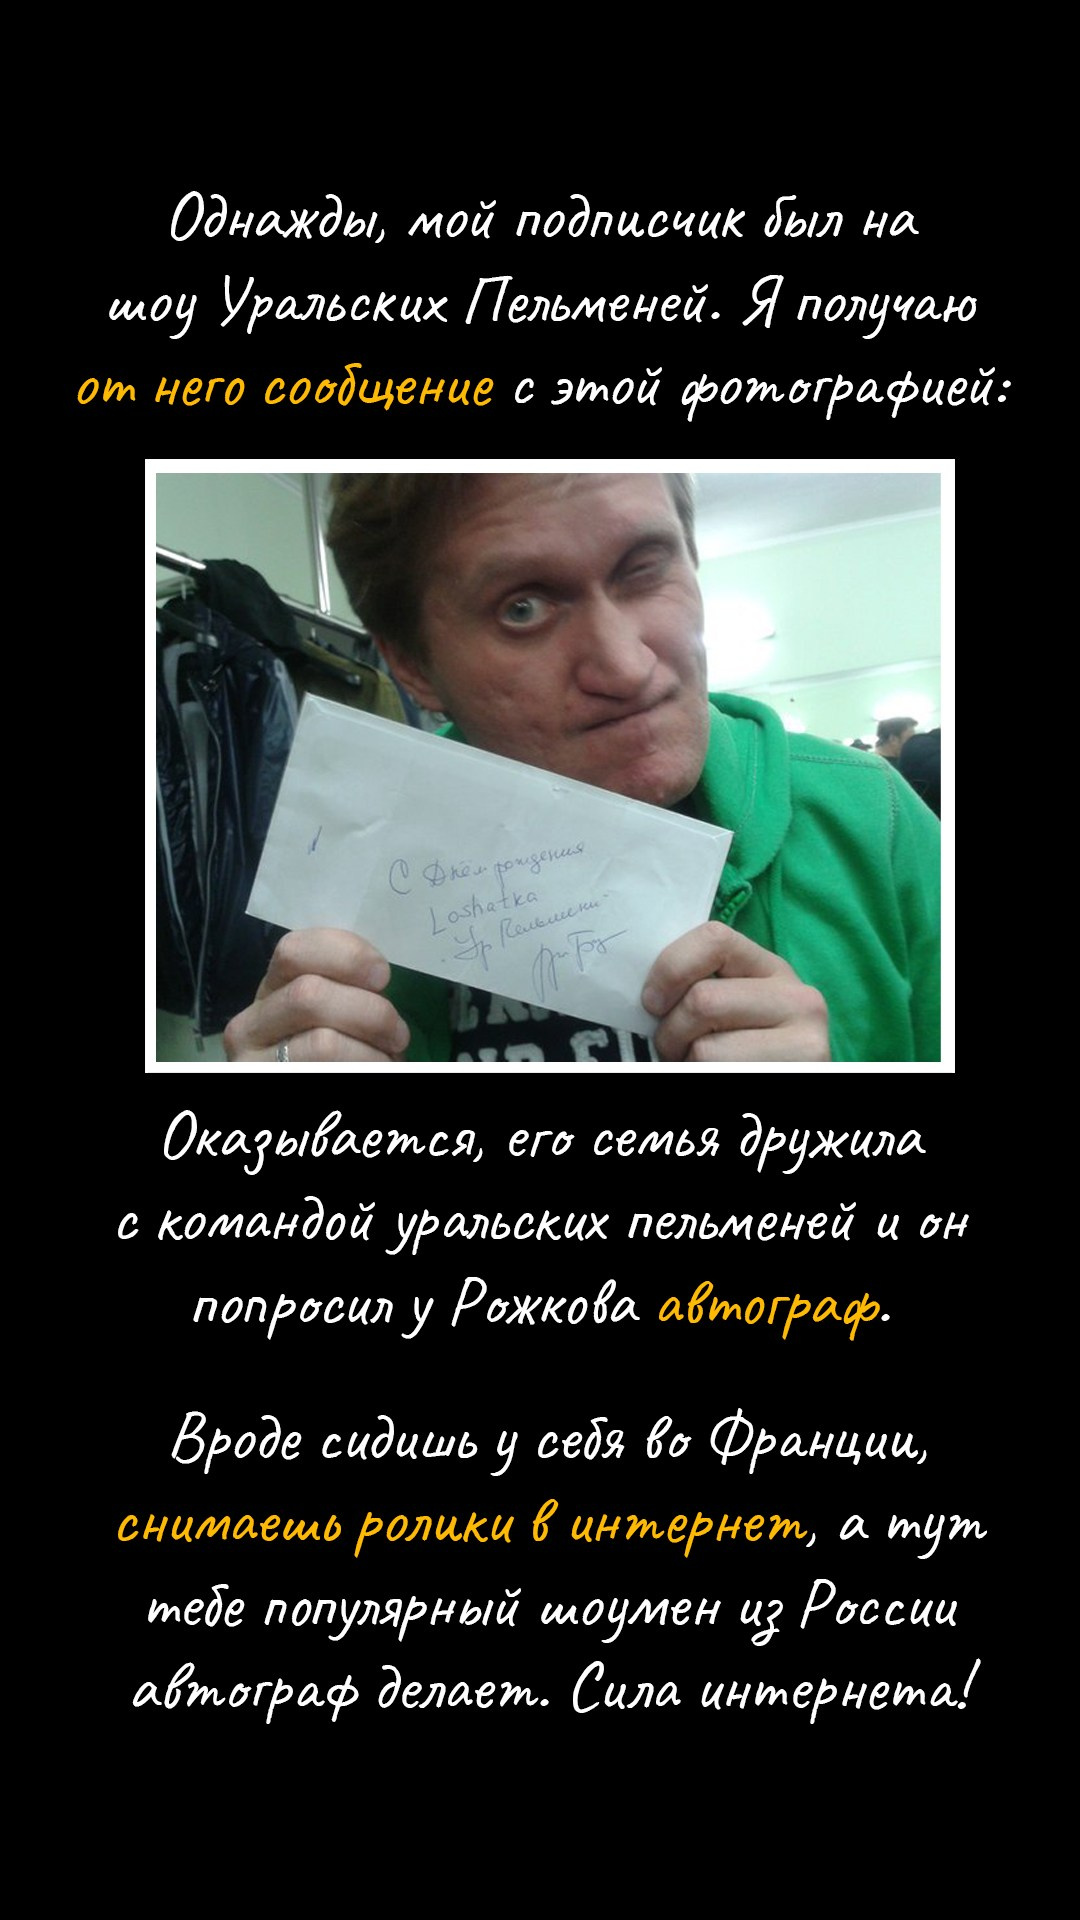 Однажды, мой подписчик был на
шоу Уральских Пельменей. Я получаю
от него сообщение с этой фотографией:
С Днём рождения
Loshatka
Ур Пельмени
Оказывается, его семья дружила
с командой уральских пельменей и он
попросил у Рожкова автограф.
Вроде сидишь у себя во Франции,
снимаешь ролики в интернет, а тут
тебе популярный шоумен из России
автограф делает. Сила интернета!